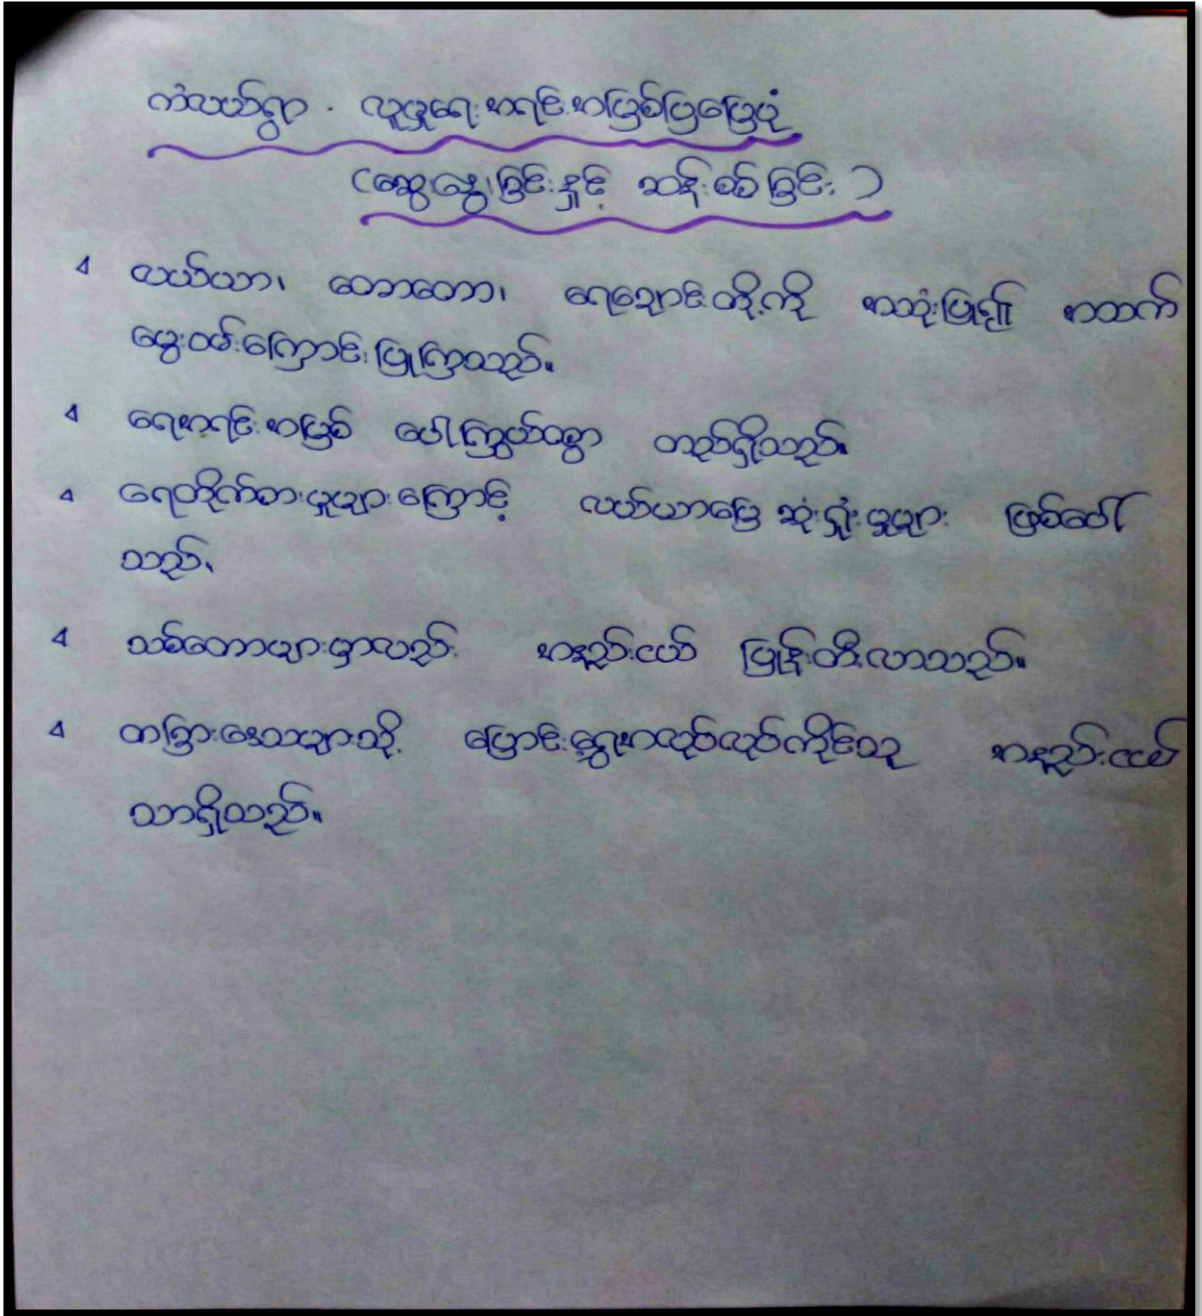 ကံလယ်ရွာ - လူမှုရေးအရင်းအမြစ်ပြမြေပုံ
(ဆွေးနွေးခြင်းနှင့် ဆန်းစစ်ခြင်း)
လယ်ယာ၊ တောတော၊ ရေချောင်းတို့ကို အသုံးပြု၍ အသက်
မွေးဝမ်းကြောင်းပြုကြသည်။
ရေအရင်းအမြစ် ပေါကြွယ်ဝစွာ တည်ရှိသည်။
ရေတိုက်စားမှုများကြောင့် လယ်ယာမြေဆုံးရှုံးမှုများ ဖြစ်ပေါ်
သည်။
သစ်တောများမှာလည်း အနည်းငယ် ပြုန်းတီးလာသည်။
တခြားဒေသများသို့ ပြောင်းရွှေ့အလုပ်လုပ်ကိုင်သူ အနည်းငယ်
သာရှိသည်။